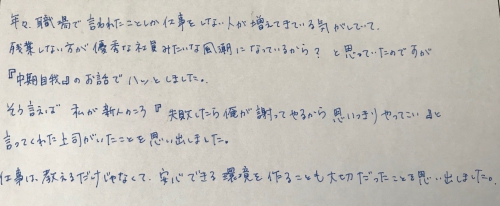 年々、職場で言われたことしか仕事をしない人が増えてきている気がしていて、
残業しない方が優秀な社員みたいな風潮になっているから？と思っていたのですが
『中期自我』のお話でハッとしました。
そう言えば 私が新人のころ『失敗したら俺が謝ってやるから 思いっきりやってこい』と
言ってくれた上司がいたことを思い出しました。
仕事は、教えるだけじゃなくて、安心できる環境を作ることも大切だったことを思い出しました。